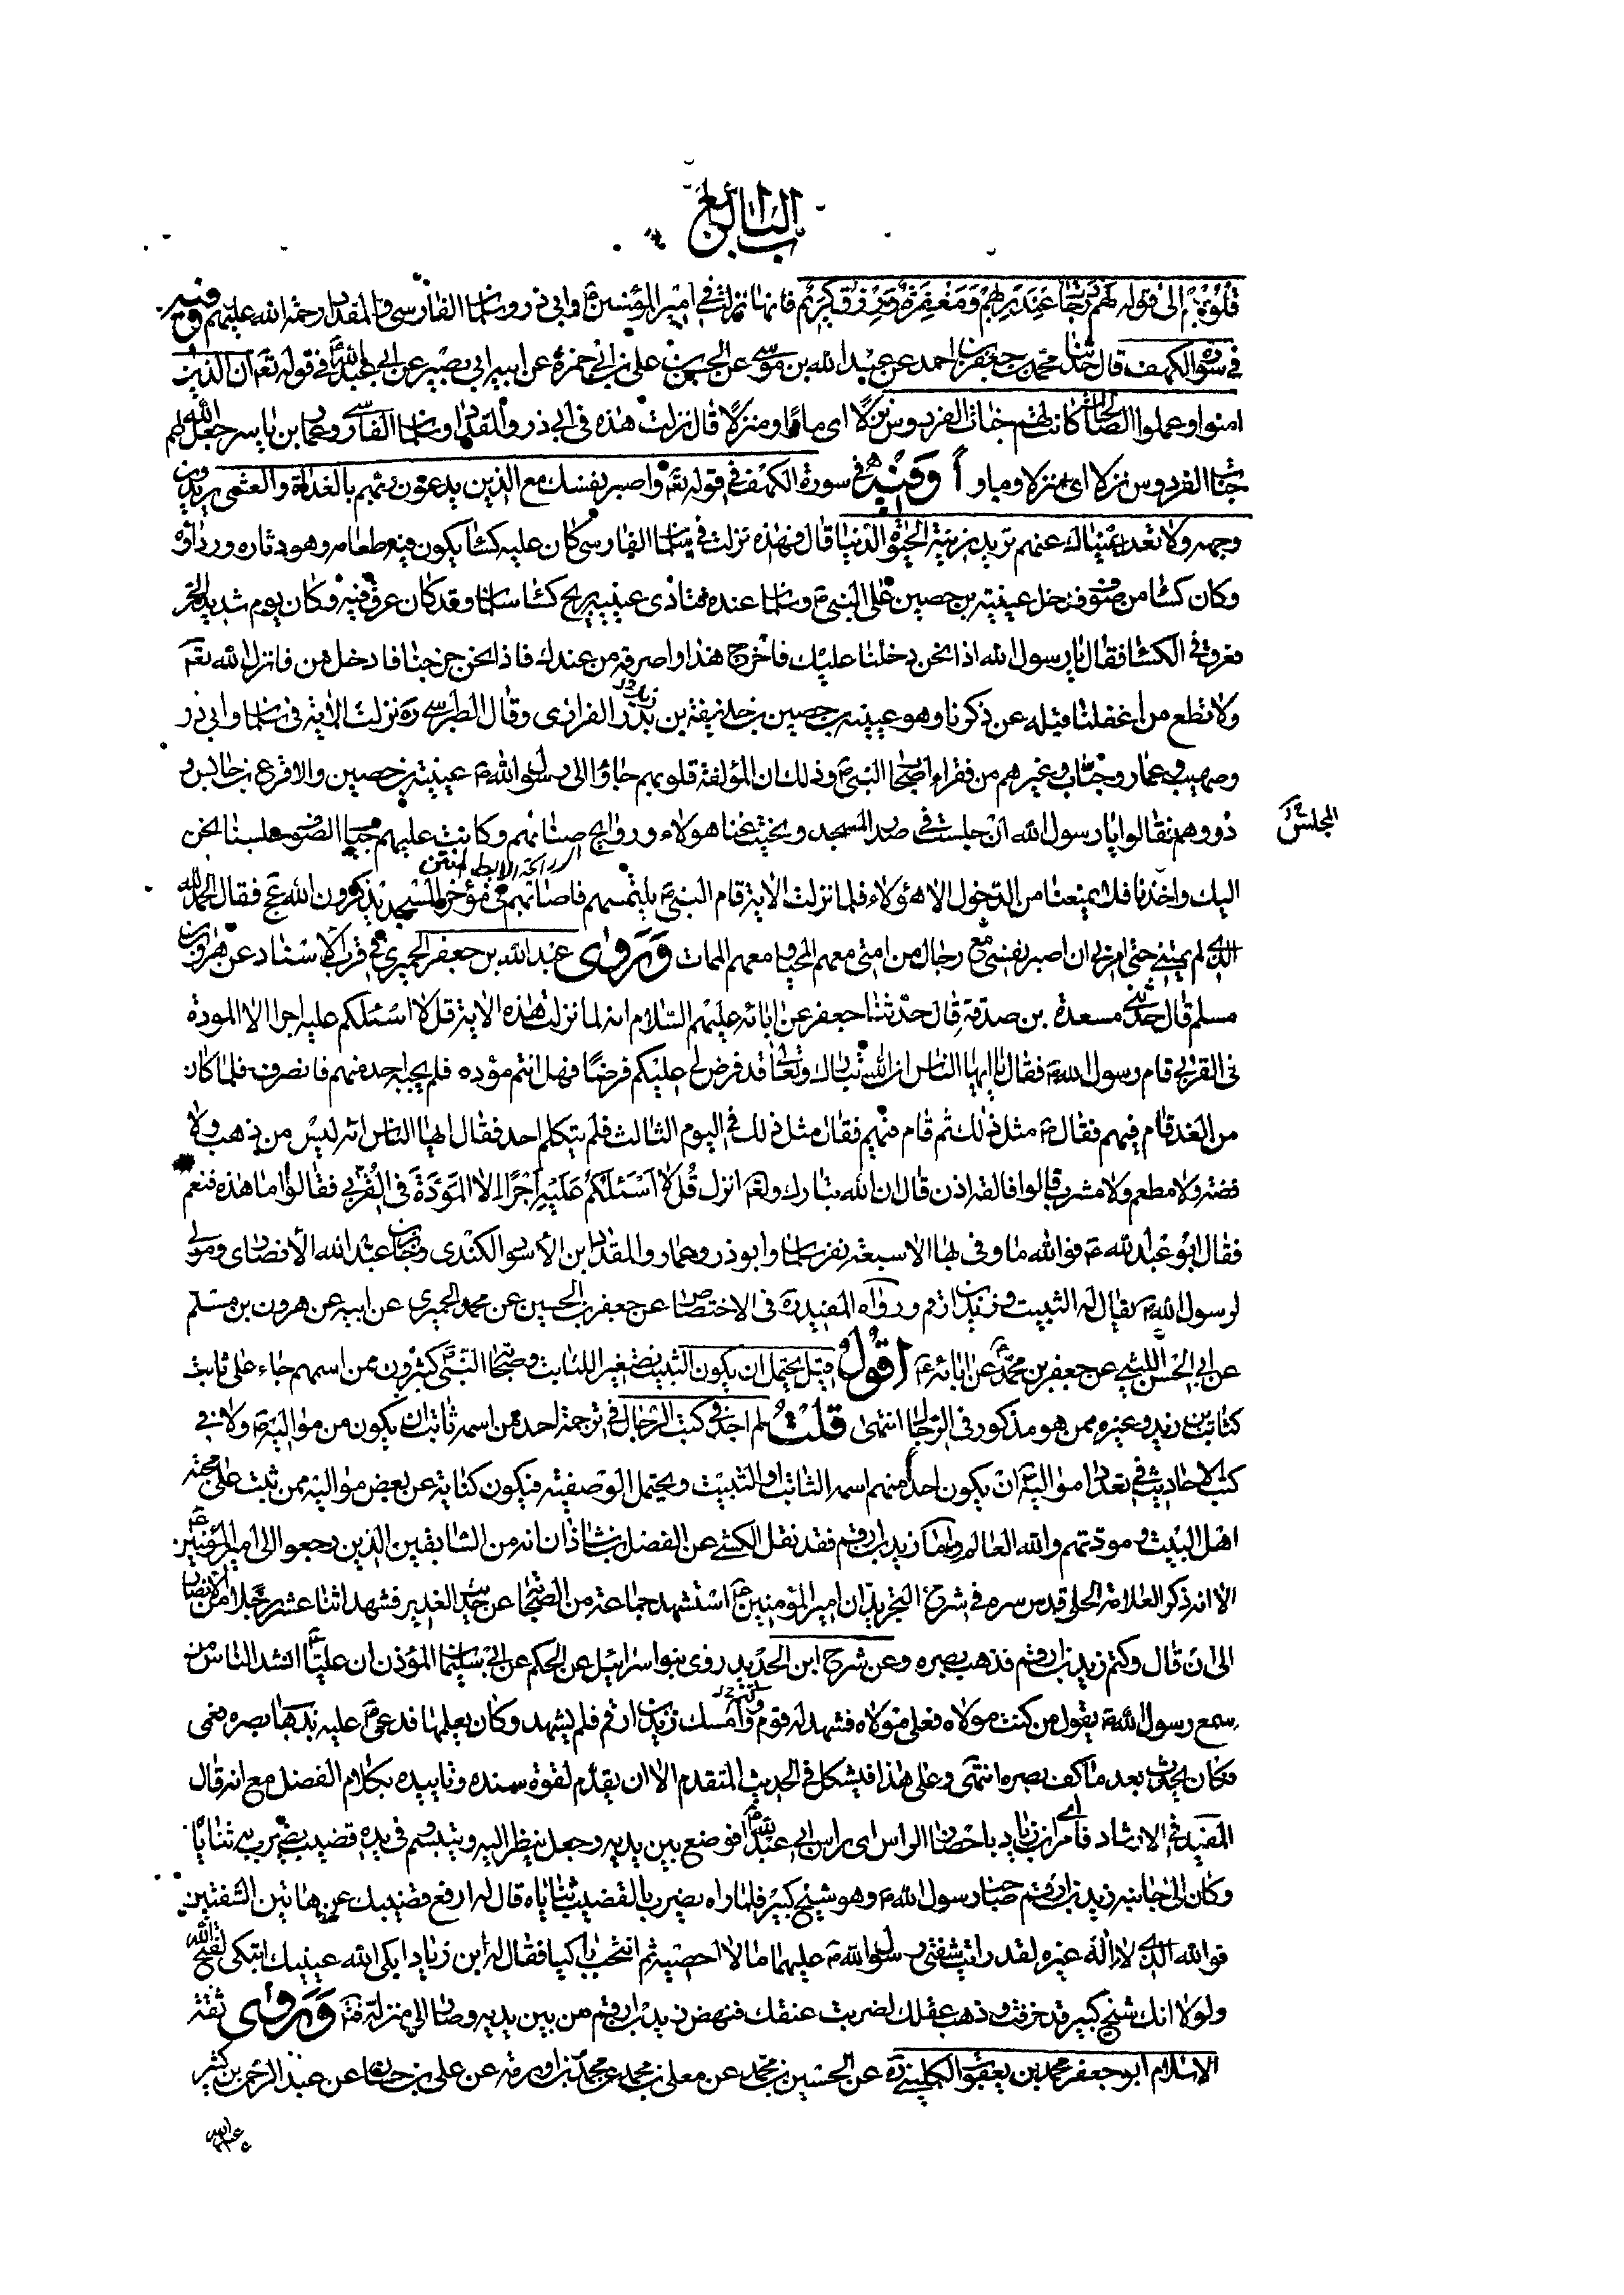 الباب الرابع
قلوبهم الى قوله لهم درجات عند ربهم ومغفرة ورزق كريم فانها نزلت في امير المؤمنين ع وابي ذر وسلمان الفارسي والمقداد رحمة الله عليهم وفيه
في سورة الكهف قال حدثنا محمد بن جعفر بن احمد عن عبيد الله بن موسى عن الحسن بن علي بن ابي حمزة عن ابيه عن ابي بصير عن ابي عبد الله ع في قوله تعم ان الذين
امنوا وعملوا الصالحات كانت لهم جنات الفردوس نزلا اى ماوا ومنزلا قال نزلت هذه في ابي ذر والمقداد وسلمان الفارسي وعمار بن ياسر جعل الله لهم
جنات الفردوس نزلا اى منزلا وماوا وفيه في سورة الكهف في قوله تعم واصبر نفسك مع الذين يدعون ربهم بالغداوة والعشي يريدون
وجهه ولا تعد عيناك عنهم تريد زينة الحيوة الدنيا قال فهذه نزلت في سلمان الفارسي كان عليه كساء يكون فيه طعامه وهو دثاره ورداؤه
وكان كساء من صوف فدخل عيينة بن حصين على النبي ص وسلمان عنده فتاذى عيينة بريح كساء سلمان وقد كان عرق فيه وكان يوم شديد الحر
فعرق في الكساء فقال يا رسول الله اذا نحن دخلنا عليك فاخرج هذا واصرفه من عندك فاذا نحن خرجنا فادخل من فانزل الله تعم
ولا تطع من اغفلنا قلبه عن ذكرنا وهو عيينة بن حصين بن حذيفة بن بدر الفزاري وقال الطبرسي ره نزلت الاية في سلمان وابي ذر
وصهيب وعمار وخباب وغيرهم من فقراء اصحاب النبي ص وذلك ان المؤلفة قلوبهم جاؤا الى رسول الله ص عيينة بن حصين والاقرع بن حابس و
المجلس
ذووهم فقالوا يا رسول الله ان جلست في صدر المسجد ونحيت عنا هولاء وروايح صنانهم وكانت عليهم جباب الصوف جلسنا نحن
الرائحة الابط المنتن
اليك واخذنا فلا يمنعنا من الدخول الا هؤلاء فلما نزلت الاية قام النبي ص يلتمسهم فاصابهم في مؤخر المسجد يذكرون الله عج فقال الحمد لله
الذي لم يمتني حتى امرني ان اصبر نفسي مع رجال من امتي معهم المحيا ومعهم الممات وروى عبد الله بن جعفر الحميري في قرب الاسناد عن هرون بن
مسلم قال حدثني مسعدة بن صدقة قال حدثنا جعفر عن ابائه عليهم السلام انه لما نزلت هذه الاية قل لا اسئلكم عليه اجرا الا المودة
في القربى قام رسول الله ص فقال يا ايها الناس ان الله تبارك وتعالى قد فرض لي عليكم فرضا فهل انتم مؤده فلم يجبه احد منهم فانصرف فلما كان
من الغد قام فيهم فقال ص مثل ذلك ثم قام فيهم فقال مثل ذلك في اليوم الثالث فلم يتكلم احد فقال ايها الناس انه ليس من ذهب ولا
فضة ولا مطعم ولا مشرب قالوا فالقه اذن قال ان الله تبارك وتعم انزل قل لا اسئلكم عليه اجرا الا المودة في القربى فقالوا اما هذه فنعم
فقال ابو عبد الله ع فوالله ما وفى بها الا سبعة نفر سلمان وابو ذر وعمار والمقداد ابن الاسود الكندي وجابر بن عبد الله الانصاري ومولى
لرسول الله ص يقال له الثبيت وزيد بن ارقم ورواه المفيد ره في الاختصاص عن جعفر بن الحسين عن محمد الحميري عن ابيه عن هرون بن مسلم
عن ابي الحسن الليثي عن جعفر بن محمد ع عن ابائه ع اقول قيل يحتمل ان يكون الثبيت تصغير الثابت وصحابة النبي ص كثيرون ممن اسمهم جاء على ثابت
كثابت بن زيد وغيره ممن هو مذكور في الرجال انتهى قلت لم اجد في كتب الرجال في ترجمة احد من اسمه ثابت ان يكون من موالي النبي ص ولا في
كتب الاحاديث في تعداد مواليه ص ان يكون احد منهم اسمه الثابت او الثبيت ويحتمل الوصفية فيكون كناية عن بعض مواليه ممن ثبت على محبة
اهل البيت ومودتهم والله العالم واما زيد بن ارقم فقد نقل الكشي عن الفضل بن شاذان انه من السابقين الذين رجعوا الى امير المؤمنين ع
الا انه ذكر العلامة الحلي قدس سره في شرح التجريد ان امير المؤمنين ع استشهد جماعة من الصحابة عن حديث الغدير فشهد اثنا عشر رجلا من الانصار
الى ان قال وكتم زيد بن ارقم فذهب بصره وعن شرح ابن الحديد روى بنو اسرائيل عن الحكم عن ابي سليمان المؤذن ان عليا ع انشد الناس من
سمع رسول الله ص يقول من كنت مولاه فعلي مولاه فشهد له قوم وامسك زيد بن ارقم فلم يشهد وكان يعلمها فدعى ع عليه بذهاب بصره فعمى
فكان يحدث بعد ما كف بصره انتهى وعلى هذا فيشكل في الحديث المتقدم الا ان يقدم لقوة سنده وتاييده بكلام الفضل مع انه قال
المفيد في الارشاد فامر اى ابن زياد باحضار الراس اى راس ابي عبد الله ع فوضع بين يديه وجعل ينظر اليه ويتبسم وفي يده قضيب يضرب به ثناياه
وكان الى جانبه زيد بن ارقم صاحب رسول الله ص وهو شيخ كبير فلما راه يضرب بالقضيب ثناياه قال له ارفع قضيبك عن هاتين الشفتين
فوالله الذي لا اله غيره لقد رايت شفتى رسول الله ص عليهما ما لا احصيه ثم انتحب باكيا فقال له ابن زياد ابكى الله عينيك اتبكى لفتح الله
ولولا انك شيخ كبير قد خرفت وذهب عقلك لضربت عنقك فنهض زيد بن ارقم من بين يديه وصار الى منزله وروى ثقة
الاسلام ابو جعفر محمد بن يعقوب الكليني ره عن الحسين بن محمد عن معلى بن محمد عن محمد بن اورمة عن علي بن حسان عن عبد الرحمن بن كثير